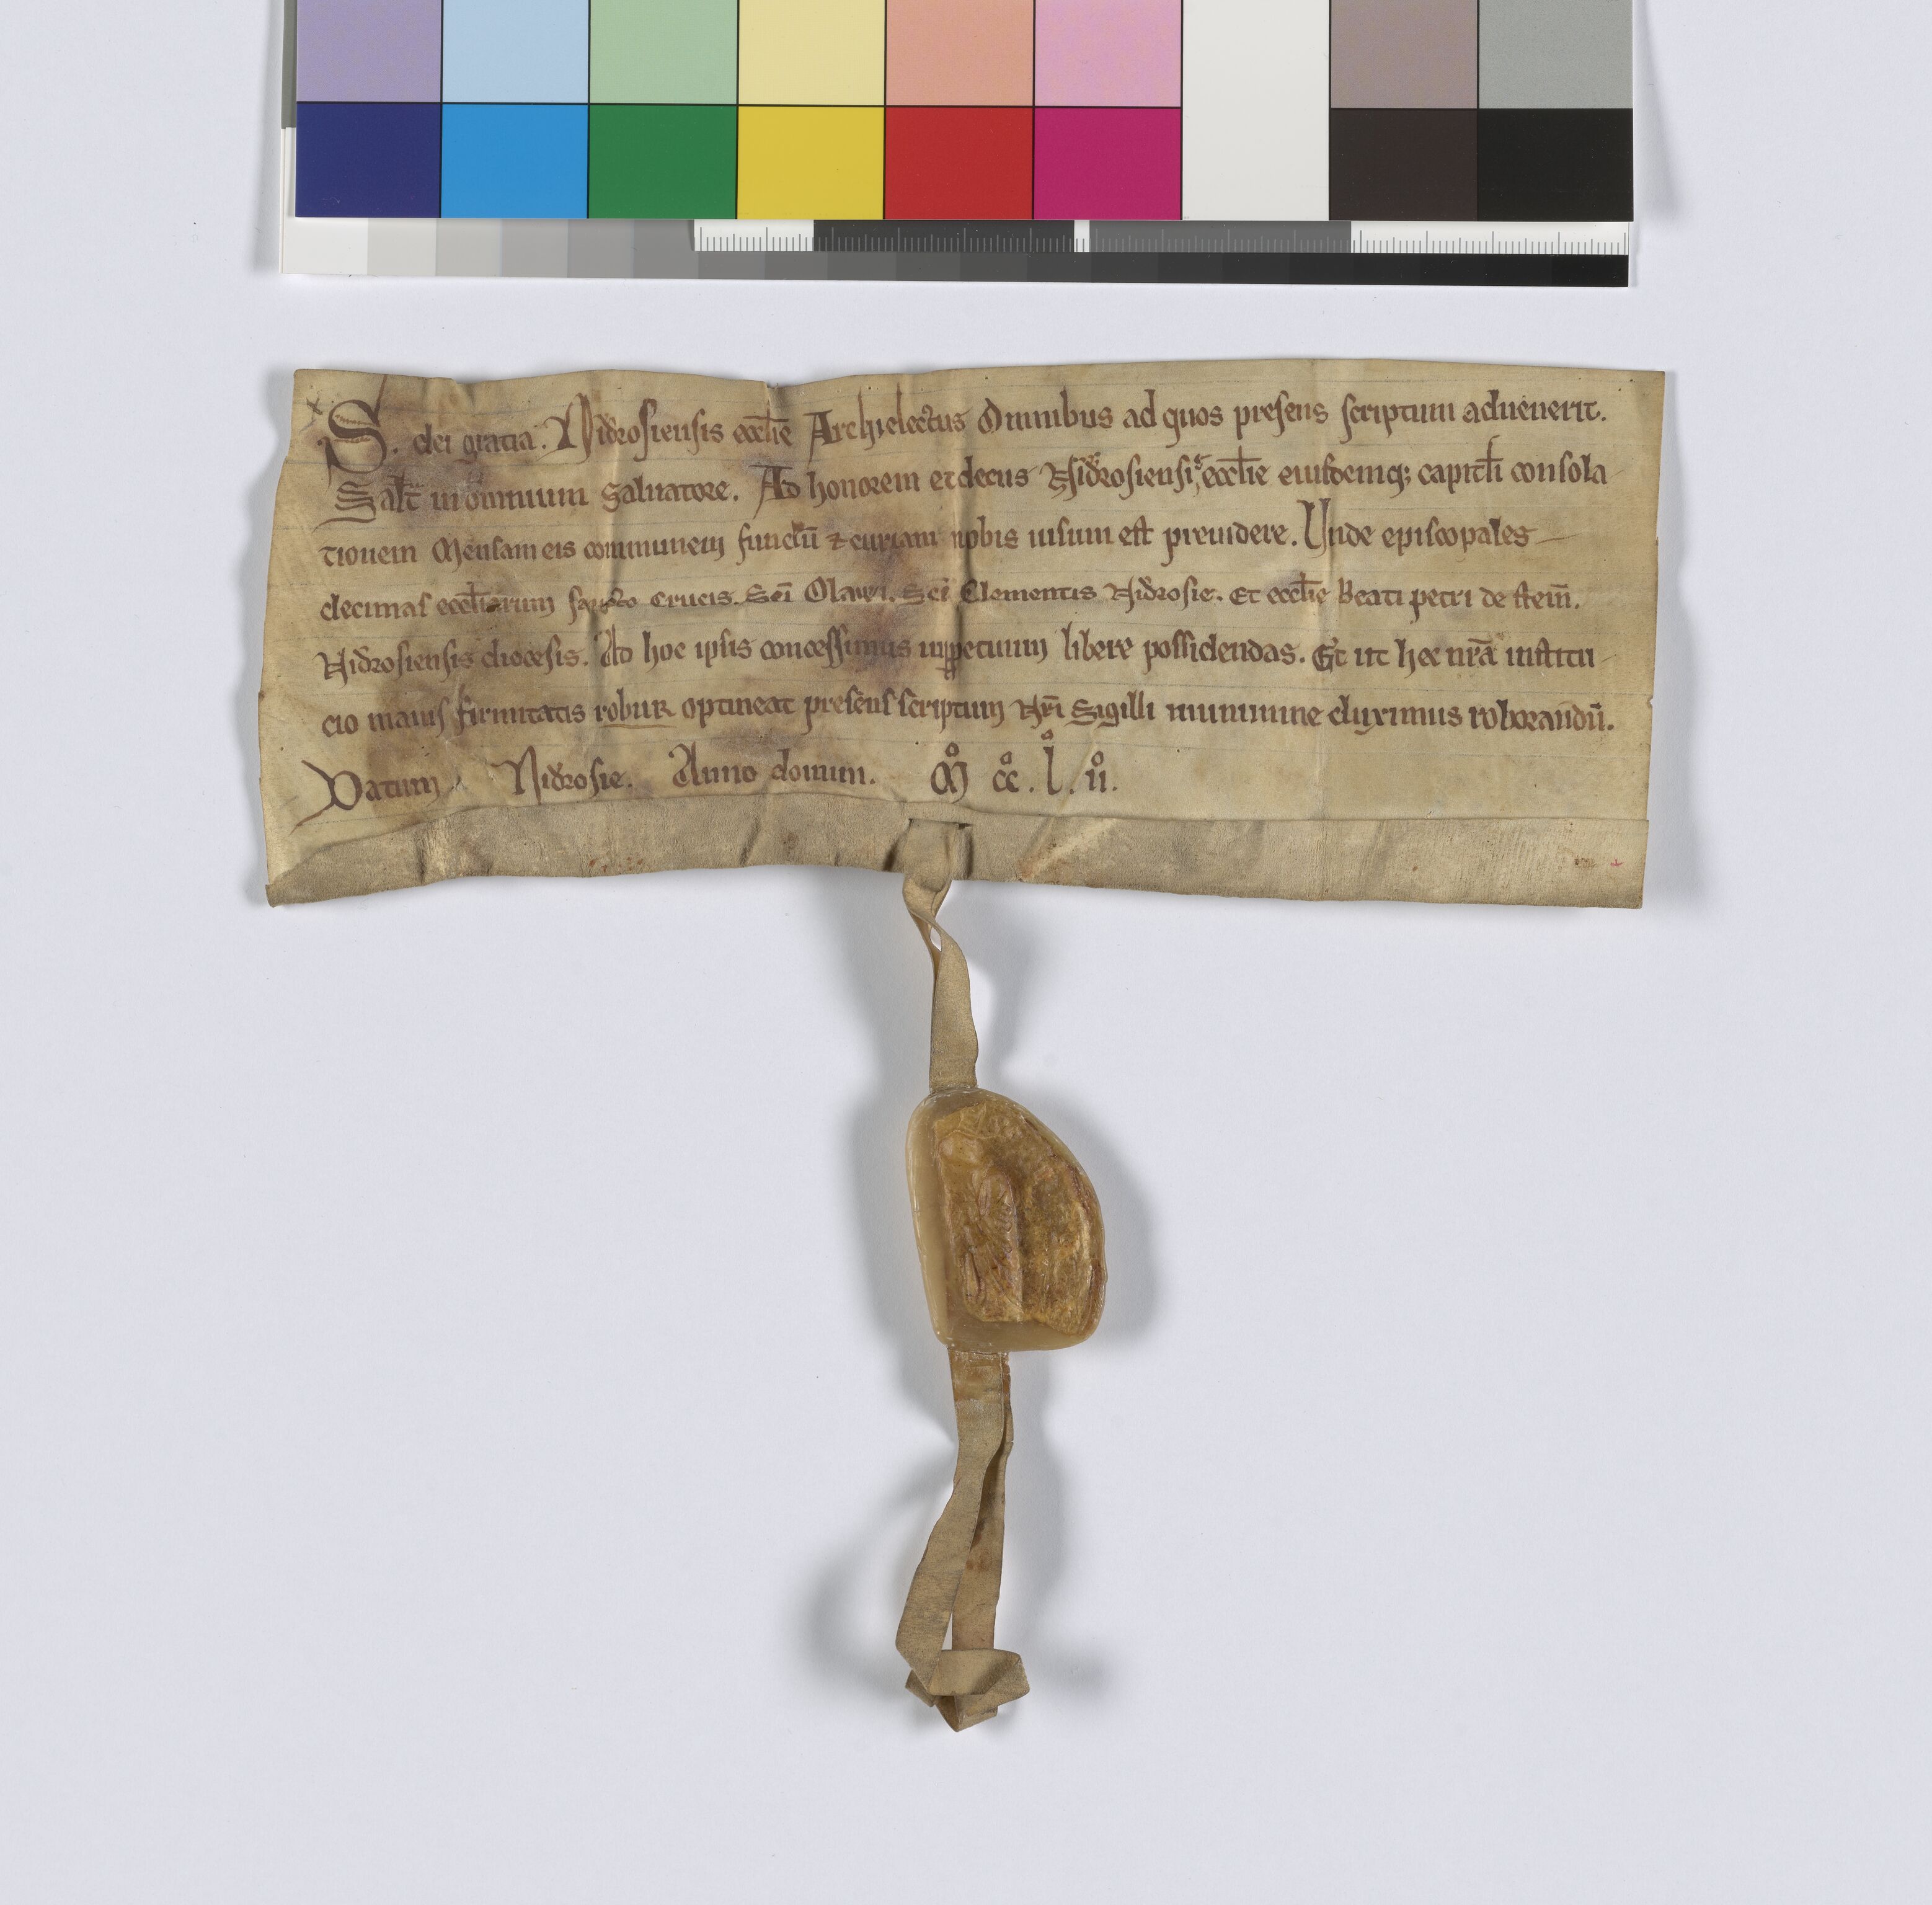 S. dei gratia. Nidrosiensis eccl̄ie Archielectus Omnibus ad quos presens scriptum aduenerit.
Salt̄ in omnium saluatore. Ad honorem et decus Nidrosiensis eccl̄ie eiusdemq; capitl̄i consola
tionem Mensam eis communem functū ⁊ curiam nobis uisum est preuidere. Unde episcopales
decimas eccl̄iarum sancte crucis. Sc̄i Olawi. Sc̄i Clementis Nidrosie. Et eccl̄ie Beati petri de stein̄.
Nidrosiensis diocesis. Ad hoc ipsis concessimus inꝑpetuum libere possidendas. Et ut hec nr̄a institu
cio maius firmitatis robur optineat presens scriptum Nr̄i Sigilli munimine duximus roborandū.
Datum Nidrosie. Anno domini. M̊ c̊c. l̊. ii̊.